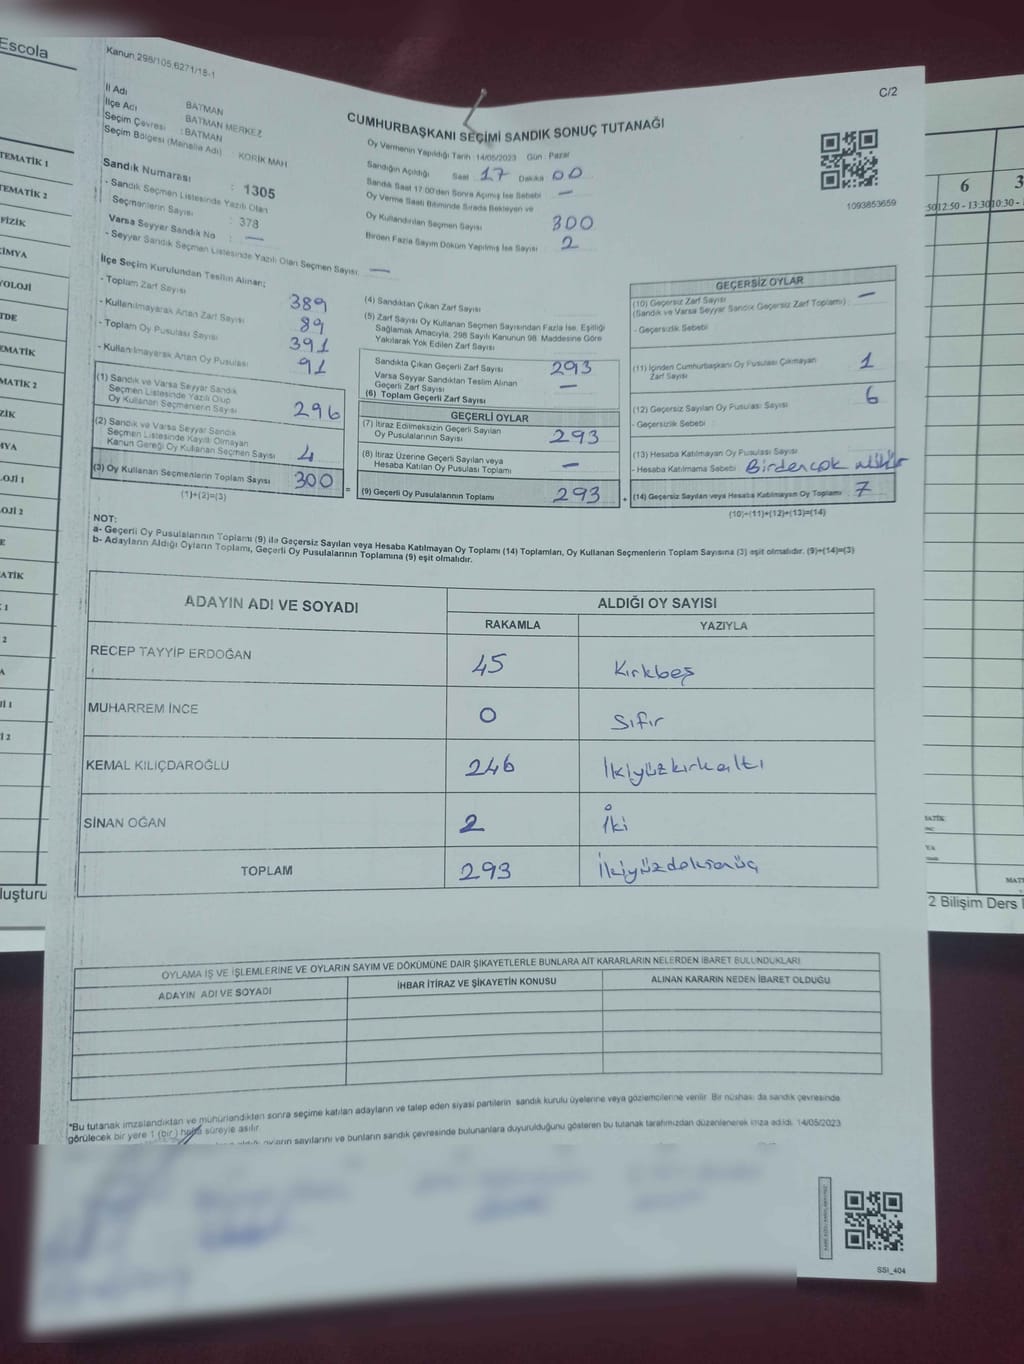 Escola
TEMATİK 1
TEMATİK 2
FİZİK
KİMYA
YOLOJİ
TDE
EMATİK
MATİK 2
ZİK
MYA
OJİ 1
OJİ 2
E
ATİK
2
A
İ 1
İ 2
luşturu
Kanun 298/105,6271/18-1
C/2
İl Adı BATMAN
İlçe Adı BATMAN MERKEZ
Seçim Çevresi : BATMAN
Seçim Bölgesi (Mahalle Adı) KORİK MAH
Sandık Numarası : 1305
- Sandık Seçmen Listesinde Yazılı Olan
Seçmenlerin Sayısı : 378
Varsa Seyyar Sandık No : —
- Seyyar Sandık Seçmen Listesinde Yazılı Olan Seçmen Sayısı: —
CUMHURBAŞKANI SEÇİMİ SANDIK SONUÇ TUTANAĞI
Oy Vermenin Yapıldığı Tarih : 14/05/2023 Gün : Pazar
Sandığın Açıldığı Saat : 17 Dakika 00
Sandık Saat 17.00'den Sonra Açılmış İse Sebebi —
Oy Verme Saati Bitiminde Sırada Bekleyen ve
Oy Kullandırılan Seçmen Sayısı 300
Birden Fazla Sayım Döküm Yapılmış İse Sayısı 2
1093853659
İlçe Seçim Kurulundan Teslim Alınan;
- Toplam Zarf Sayısı 389
- Kullanılmayarak Artan Zarf Sayısı 89
- Toplam Oy Pusulası Sayısı 391
- Kullanılmayarak Artan Oy Pusulası 91
(1) Sandık ve Varsa Seyyar Sandık
Seçmen Listesinde Yazılı Olup
Oy Kullanan Seçmenlerin Sayısı 296
(2) Sandık ve Varsa Seyyar Sandık
Seçmen Listesinde Kayıtlı Olmayan
Kanun Gereği Oy Kullanan Seçmen Sayısı 4
(3) Oy Kullanan Seçmenlerin Toplam Sayısı 300 =
(1)+(2)=(3)
(4) Sandıktan Çıkan Zarf Sayısı
(5) Zarf Sayısı Oy Kullanan Seçmen Sayısından Fazla İse, Eşitliği
Sağlamak Amacıyla, 298 Sayılı Kanunun 98. Maddesine Göre
Yakılarak Yok Edilen Zarf Sayısı
Sandıkta Çıkan Geçerli Zarf Sayısı 293
Varsa Seyyar Sandıktan Teslim Alınan
Geçerli Zarf Sayısı —
(6) Toplam Geçerli Zarf Sayısı
GEÇERLİ OYLAR
(7) İtiraz Edilmeksizin Geçerli Sayılan
Oy Pusulalarının Sayısı 293
(8) İtiraz Üzerine Geçerli Sayılan veya
Hesaba Katılan Oy Pusulası Toplamı —
(9) Geçerli Oy Pusulalarının Toplamı 293 +
GEÇERSİZ OYLAR
(10) Geçersiz Zarf Sayısı —
(Sandık ve Varsa Seyyar Sandık Geçersiz Zarf Toplamı)
- Geçersizlik Sebebi
(11) İçinden Cumhurbaşkanı Oy Pusulası Çıkmayan 1
Zarf Sayısı
(12) Geçersiz Sayılan Oy Pusulası Sayısı 6
- Geçersizlik Sebebi
(13) Hesaba Katılmayan Oy Pusulası Sayısı
- Hesaba Katılmama Sebebi Birdençok
(14) Geçersiz Sayılan veya Hesaba Katılmayan Oy Toplamı 7
(10)+(11)+(12)+(13)=(14)
NOT:
a- Geçerli Oy Pusulalarının Toplamı (9) ile Geçersiz Sayılan veya Hesaba Katılmayan Oy Toplamı (14) Toplamları, Oy Kullanan Seçmenlerin Toplam Sayısına (3) eşit olmalıdır. (9)+(14)=(3)
b- Adayların Aldığı Oyların Toplamı, Geçerli Oy Pusulalarının Toplamına (9) eşit olmalıdır.
ADAYIN ADI VE SOYADI ALDIĞI OY SAYISI
RAKAMLA YAZIYLA
RECEP TAYYİP ERDOĞAN 45 Kırkbeş
MUHARREM İNCE 0 Sıfır
KEMAL KILIÇDAROĞLU 246 İkiyüzkırkaltı
SİNAN OĞAN 2 İki
TOPLAM 293 İkiyüzdoksanüç
OYLAMA İŞ VE İŞLEMLERİNE VE OYLARIN SAYIM VE DÖKÜMÜNE DAİR ŞİKAYETLERLE BUNLARA AİT KARARLARIN NELERDEN İBARET BULUNDUKLARI
ADAYIN ADI VE SOYADI İHBAR İTİRAZ VE ŞİKAYETİN KONUSU ALINAN KARARIN NEDEN İBARET OLDUĞU
*Bu tutanak imzalandıktan ve mühürlendikten sonra seçime katılan adayların ve talep eden siyasi partilerin sandık kurulu üyelerine veya gözlemcilerine verilir. Bir nüshası da sandık çevresinde
görülecek bir yere 1 (bir) hafta süreyle asılır.
oyların sayılarını ve bunların sandık çevresinde bulunanlara duyurulduğunu gösteren bu tutanak tarafımızdan düzenlenerek imza edildi. 14/05/2023
SSI_404
6
3
12:50 - 13:30
10:30 -
MATİK
YA
MAT
2 Bilişim Ders